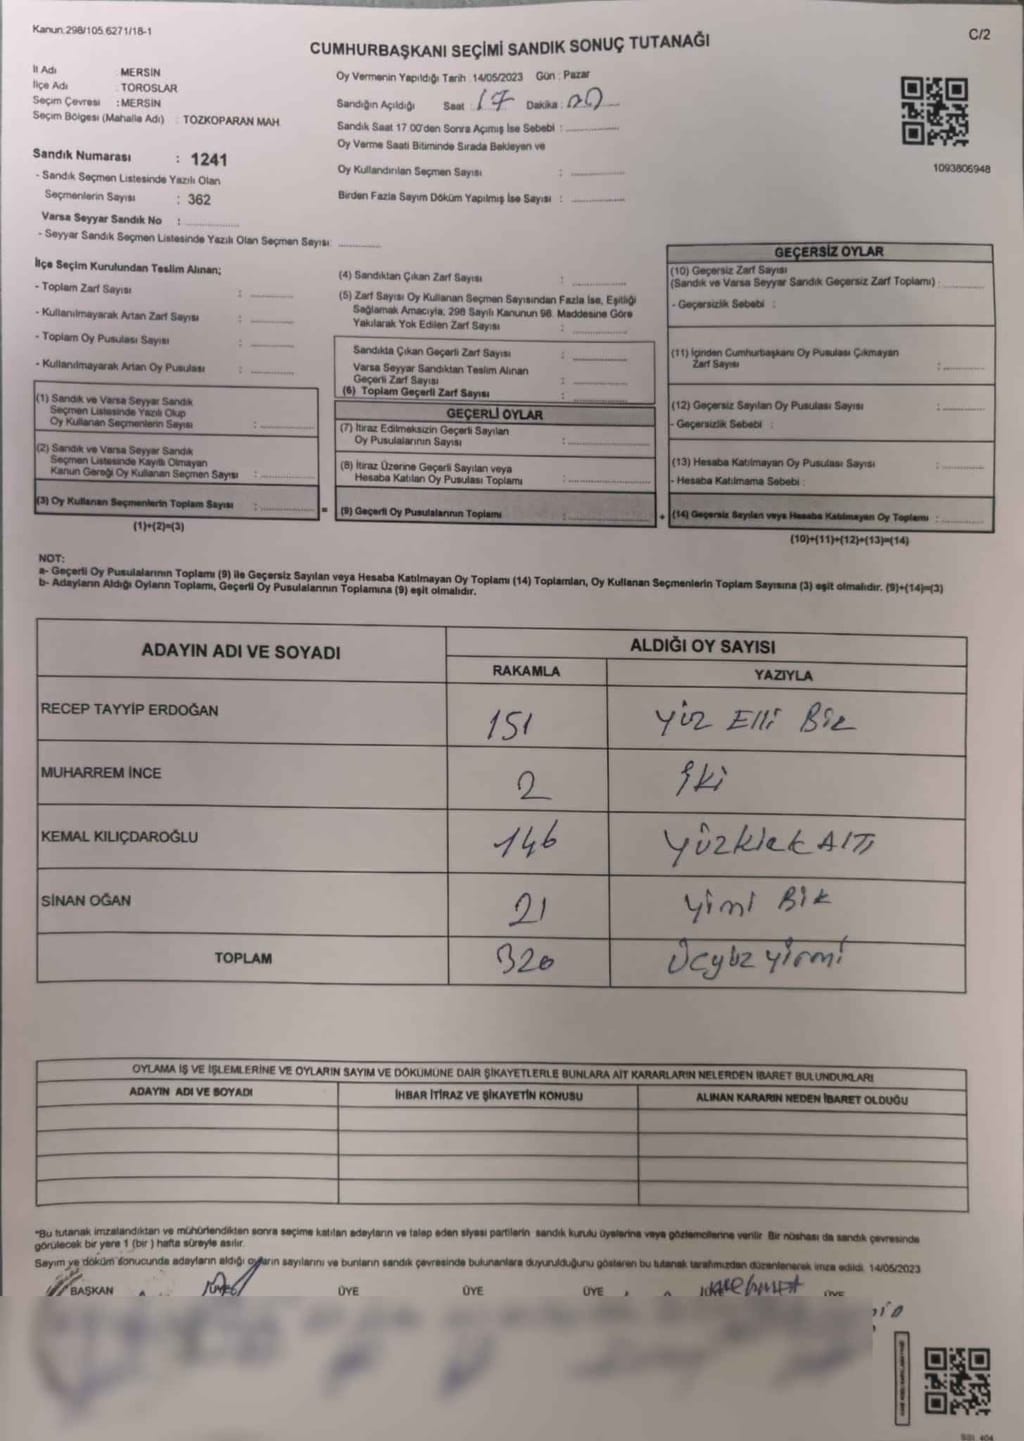 Kanun:298/105.6271/18-1
C/2
CUMHURBAŞKANI SEÇİMİ SANDIK SONUÇ TUTANAĞI
İl Adı : MERSİN
İlçe Adı : TOROSLAR
Seçim Çevresi : MERSİN
Seçim Bölgesi (Mahalle Adı) : TOZKOPARAN MAH.
Sandık Numarası : 1241
- Sandık Seçmen Listesinde Yazılı Olan
Seçmenlerin Sayısı : 362
Varsa Seyyar Sandık No :
- Seyyar Sandık Seçmen Listesinde Yazılı Olan Seçmen Sayısı:
Oy Vermenin Yapıldığı Tarih : 14/05/2023 Gün : Pazar
Sandığın Açıldığı Saat : 17 Dakika : 00
Sandık Saat 17.00'den Sonra Açılmış İse Sebebi :
Oy Verme Saati Bitiminde Sırada Bekleyen ve
Oy Kullandırılan Seçmen Sayısı :
Birden Fazla Sayım Döküm Yapılmış İse Sayısı :
1093806948
İlçe Seçim Kurulundan Teslim Alınan;
- Toplam Zarf Sayısı :
- Kullanılmayarak Artan Zarf Sayısı :
- Toplam Oy Pusulası Sayısı :
- Kullanılmayarak Artan Oy Pusulası :
(1) Sandık ve Varsa Seyyar Sandık
Seçmen Listesinde Yazılı Olup
Oy Kullanan Seçmenlerin Sayısı :
(2) Sandık ve Varsa Seyyar Sandık
Seçmen Listesinde Kayıtlı Olmayan
Kanun Gereği Oy Kullanan Seçmen Sayısı :
(3) Oy Kullanan Seçmenlerin Toplam Sayısı :
(1)+(2)=(3)
(4) Sandıktan Çıkan Zarf Sayısı :
(5) Zarf Sayısı Oy Kullanan Seçmen Sayısından Fazla İse, Eşitliği
Sağlamak Amacıyla, 298 Sayılı Kanunun 98. Maddesine Göre
Yakılarak Yok Edilen Zarf Sayısı :
Sandıkta Çıkan Geçerli Zarf Sayısı :
Varsa Seyyar Sandıktan Teslim Alınan
Geçerli Zarf Sayısı :
(6) Toplam Geçerli Zarf Sayısı :
GEÇERLİ OYLAR
(7) İtiraz Edilmeksizin Geçerli Sayılan
Oy Pusulalarının Sayısı :
(8) İtiraz Üzerine Geçerli Sayılan veya
Hesaba Katılan Oy Pusulası Toplamı :
= (9) Geçerli Oy Pusulalarının Toplamı :
GEÇERSİZ OYLAR
(10) Geçersiz Zarf Sayısı
(Sandık ve Varsa Seyyar Sandık Geçersiz Zarf Toplamı) :
- Geçersizlik Sebebi :
(11) İçinden Cumhurbaşkanı Oy Pusulası Çıkmayan
Zarf Sayısı :
(12) Geçersiz Sayılan Oy Pusulası Sayısı :
- Geçersizlik Sebebi :
(13) Hesaba Katılmayan Oy Pusulası Sayısı :
- Hesaba Katılmama Sebebi :
+ (14) Geçersiz Sayılan veya Hesaba Katılmayan Oy Toplamı :
(10)+(11)+(12)+(13)=(14)
NOT:
a- Geçerli Oy Pusulalarının Toplamı (9) ile Geçersiz Sayılan veya Hesaba Katılmayan Oy Toplamı (14) Toplamları, Oy Kullanan Seçmenlerin Toplam Sayısına (3) eşit olmalıdır. (9)+(14)=(3)
b- Adayların Aldığı Oyların Toplamı, Geçerli Oy Pusulalarının Toplamına (9) eşit olmalıdır.
ADAYIN ADI VE SOYADI ALDIĞI OY SAYISI
RAKAMLA YAZIYLA
RECEP TAYYİP ERDOĞAN 151 Yüz Elli Bir
MUHARREM İNCE 2 İki
KEMAL KILIÇDAROĞLU 146 Yüzkırk ALTI
SİNAN OĞAN 21 Yimi Bir
TOPLAM 320 Üçyüz yirmi
OYLAMA İŞ VE İŞLEMLERİNE VE OYLARIN SAYIM VE DÖKÜMÜNE DAİR ŞİKAYETLERLE BUNLARA AİT KARARLARIN NELERDEN İBARET BULUNDUKLARI
ADAYIN ADI VE SOYADI İHBAR İTİRAZ VE ŞİKAYETİN KONUSU ALINAN KARARIN NEDEN İBARET OLDUĞU
*Bu tutanak imzalandıktan ve mühürlendikten sonra seçime katılan adayların ve talep eden siyasi partilerin sandık kurulu üyelerine veya gözlemcilerine verilir. Bir nüshası da sandık çevresinde
görülecek bir yere 1 (bir) hafta süreyle asılır.
Sayım ve döküm sonucunda adayların aldığı oyların sayılarını ve bunların sandık çevresinde bulunanlara duyurulduğunu gösteren bu tutanak tarafımızdan düzenlenerek imza edildi. 14/05/2023
BAŞKAN ÜYE ÜYE ÜYE ÜYE